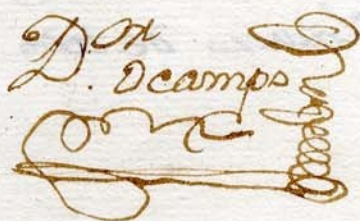 D.on
Ocampo